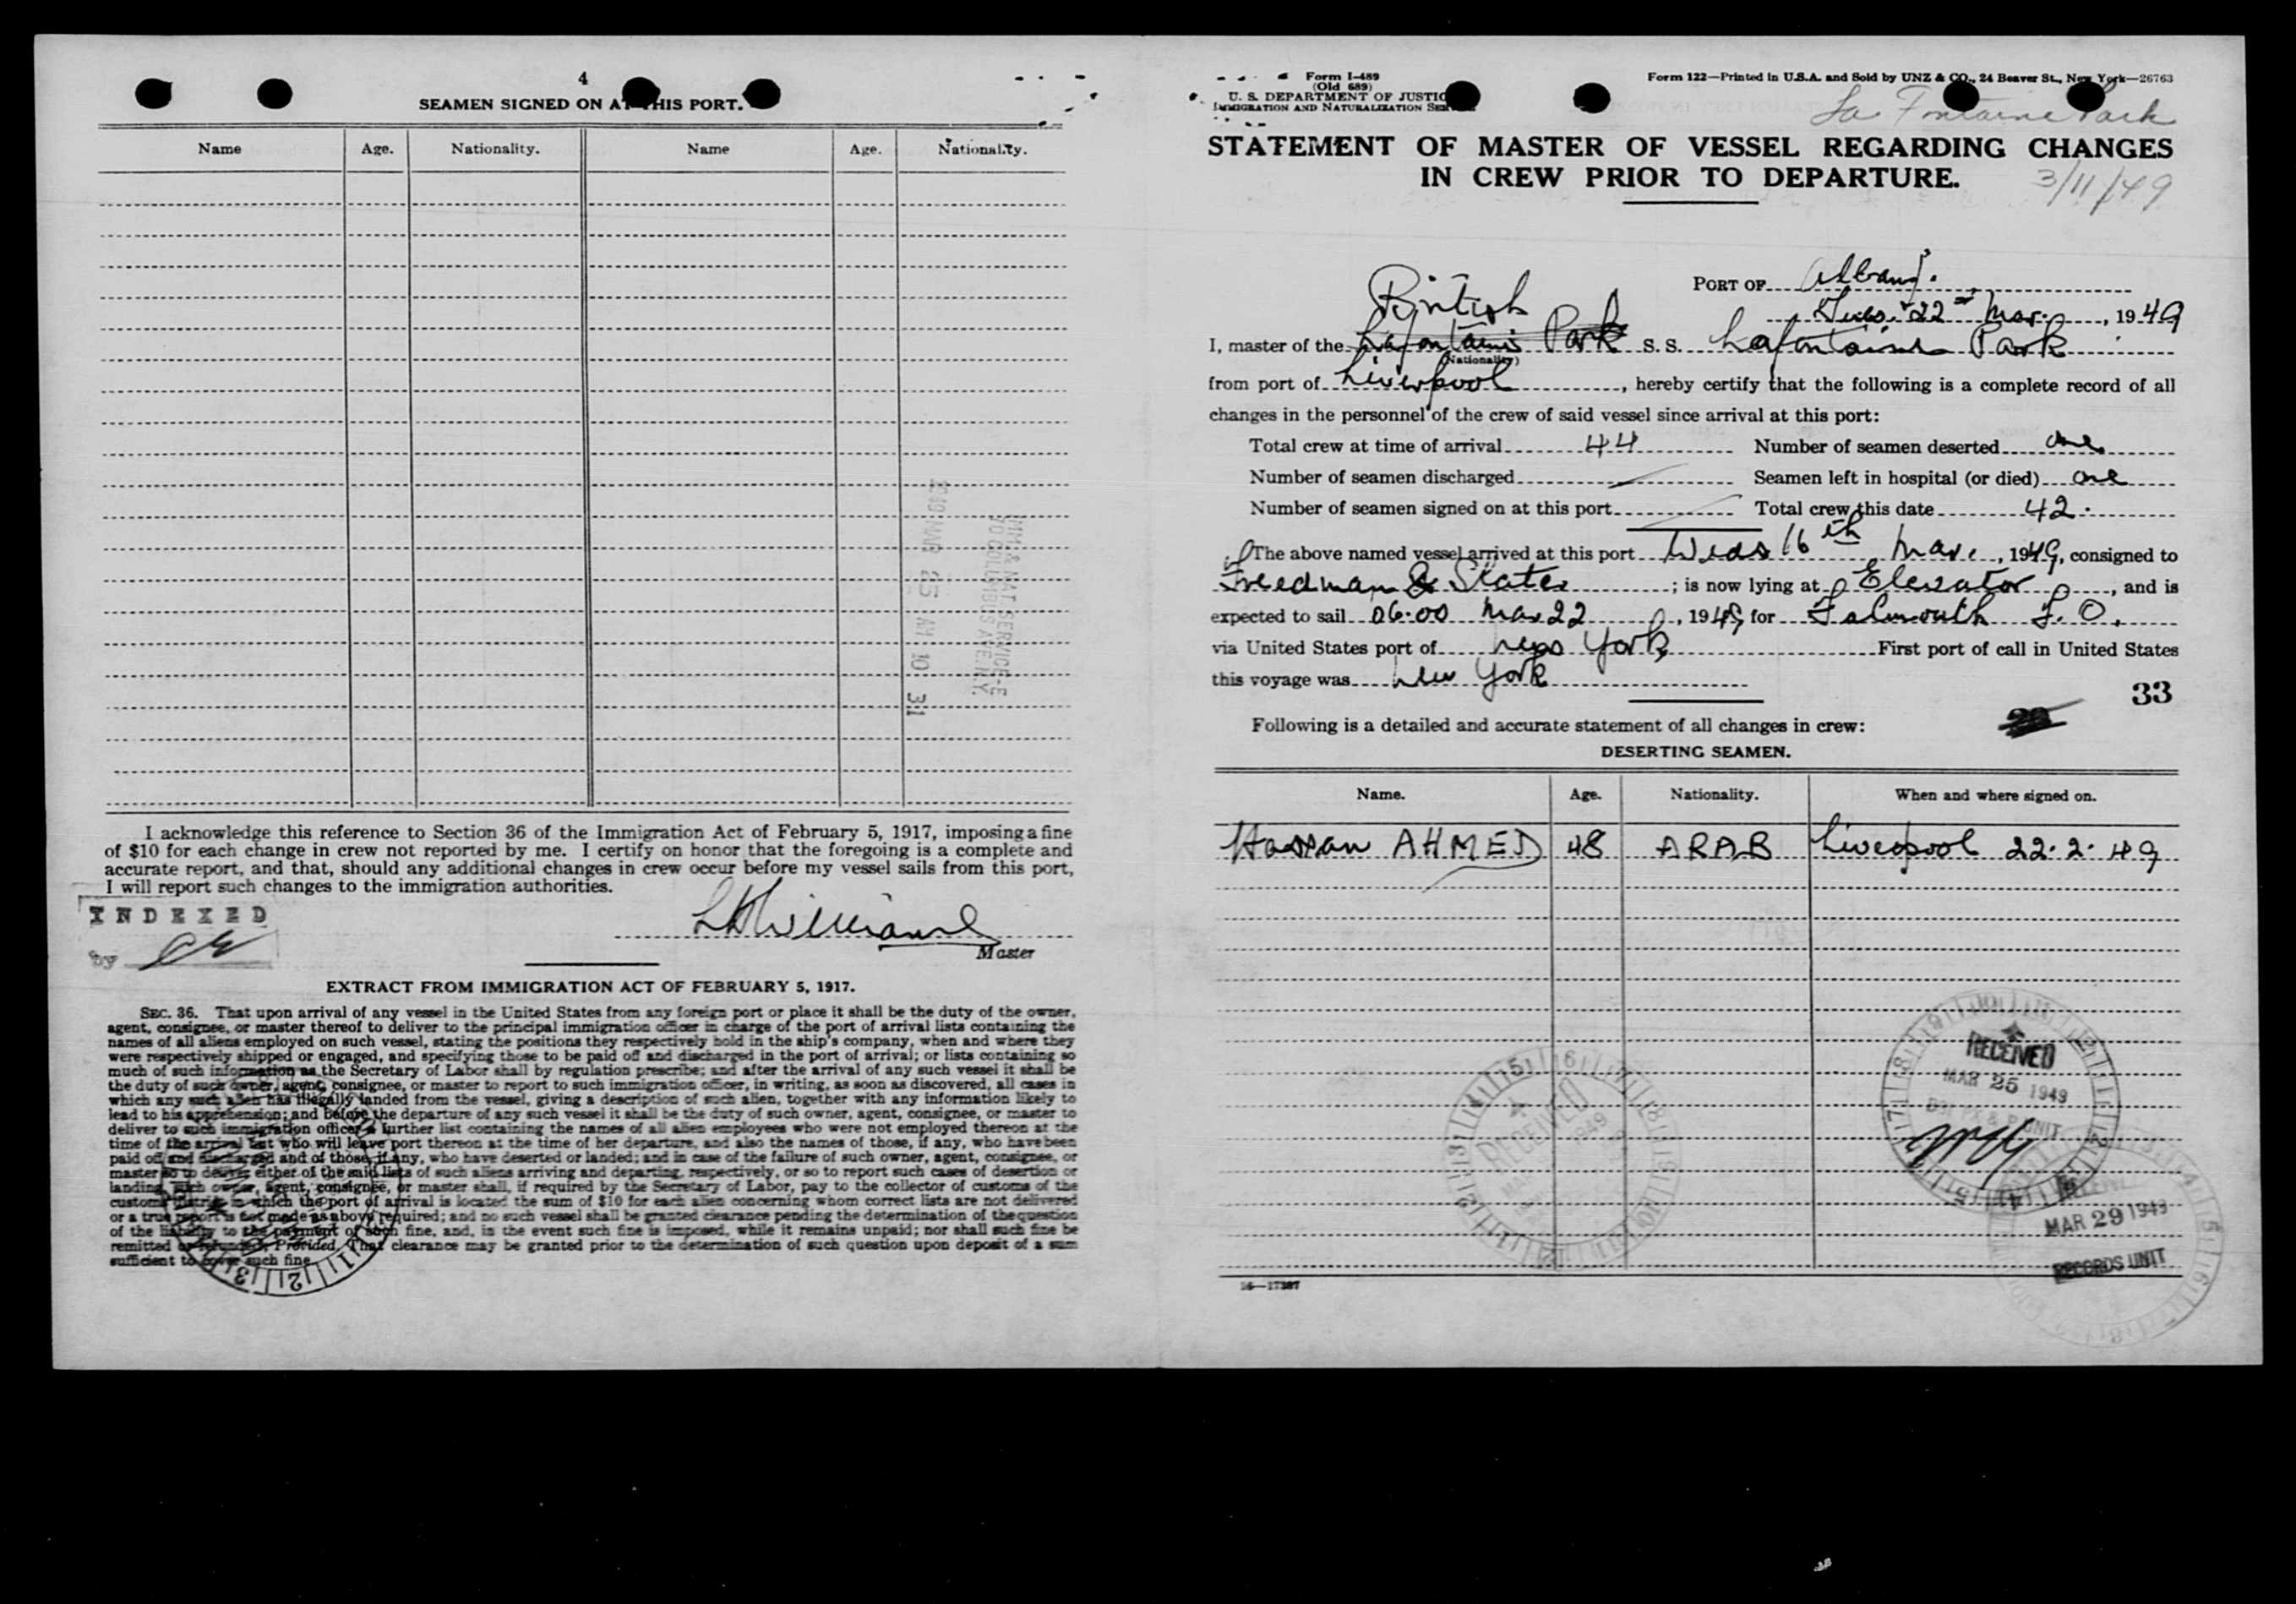 4
SEAMEN SIGNED ON AT THIS PORT.
Name Age. Nationality. Name Age. Nationality.
1949 MAR 25 AM 10 31
IMM. & NAT. SERVICE-E
70 COLUMBUS AVE. N.Y.
I acknowledge this reference to Section 36 of the Immigration Act of February 5, 1917, imposing a fine
of $10 for each change in crew not reported by me. I certify on honor that the foregoing is a complete and
accurate report, and that, should any additional changes in crew occur before my vessel sails from this port,
I will report such changes to the immigration authorities.
INDEXED
by
Williams
Master
EXTRACT FROM IMMIGRATION ACT OF FEBRUARY 5, 1917.
SEC. 36. That upon arrival of any vessel in the United States from any foreign port or place it shall be the duty of the owner,
agent, consignee, or master thereof to deliver to the principal immigration officer in charge of the port of arrival lists containing the
names of all aliens employed on such vessel, stating the positions they respectively hold in the ship's company, when and where they
were respectively shipped or engaged, and specifying those to be paid off and discharged in the port of arrival; or lists containing so
much of such information as the Secretary of Labor shall by regulation prescribe; and after the arrival of any such vessel it shall be
the duty of such owner, agent, consignee, or master to report to such immigration officer, in writing, as soon as discovered, all cases in
which any such alien has illegally landed from the vessel, giving a description of such alien, together with any information likely to
lead to his apprehension; and before the departure of any such vessel it shall be the duty of such owner, agent, consignee, or master to
deliver to such immigration officer a further list containing the names of all alien employees who were not employed thereon at the
time of the arrival but who will leave port thereon at the time of her departure, and also the names of those, if any, who have been
paid off and discharged and of those, if any, who have deserted or landed; and in case of the failure of such owner, agent, consignee, or
master so to deliver either of the said lists of such aliens arriving and departing, respectively, or so to report such cases of desertion or
landing, such owner, agent, consignee, or master shall, if required by the Secretary of Labor, pay to the collector of customs of the
customs district in which the port of arrival is located the sum of $10 for each alien concerning whom correct lists are not delivered
or a true report is not made as above required; and no such vessel shall be granted clearance pending the determination of the question
of the liability to the payment of such fine, and, in the event such fine is imposed, while it remains unpaid; nor shall such fine be
remitted or refunded: Provided, That clearance may be granted prior to the determination of such question upon deposit of a sum
sufficient to cover such fine.
Form I-489
(Old 689)
U. S. DEPARTMENT OF JUSTICE
IMMIGRATION AND NATURALIZATION SERVICE
Form 122—Printed in U.S.A. and Sold by UNZ & CO., 24 Beaver St., New York—26763
La Fontaine Park
STATEMENT OF MASTER OF VESSEL REGARDING CHANGES
IN CREW PRIOR TO DEPARTURE.
3/11/49
PORT OF Albany.
Tues. 22nd Mar. , 1949
British
I, master of the Lafontaine Park S. S. Lafontaine Park
(Nationality)
from port of Liverpool , hereby certify that the following is a complete record of all
changes in the personnel of the crew of said vessel since arrival at this port:
Total crew at time of arrival 44 Number of seamen deserted one
Number of seamen discharged Seamen left in hospital (or died) one
Number of seamen signed on at this port Total crew this date 42.
The above named vessel arrived at this port Weds 16th Mar. , 1949, consigned to
Freedman & Slater ; is now lying at Elevator , and is
expected to sail 06.00 Mar 22 , 1949 for Falmouth F. O.
via United States port of New York First port of call in United States
this voyage was New York
33
Following is a detailed and accurate statement of all changes in crew:
DESERTING SEAMEN.
Name. Age. Nationality. When and where signed on.
Hassan AHMED 48 ARAB Liverpool 22.2.49
RECEIVED
MAR 25 1949
RECEIVED
MAR 29 1949
RECORDS UNIT
16—17387